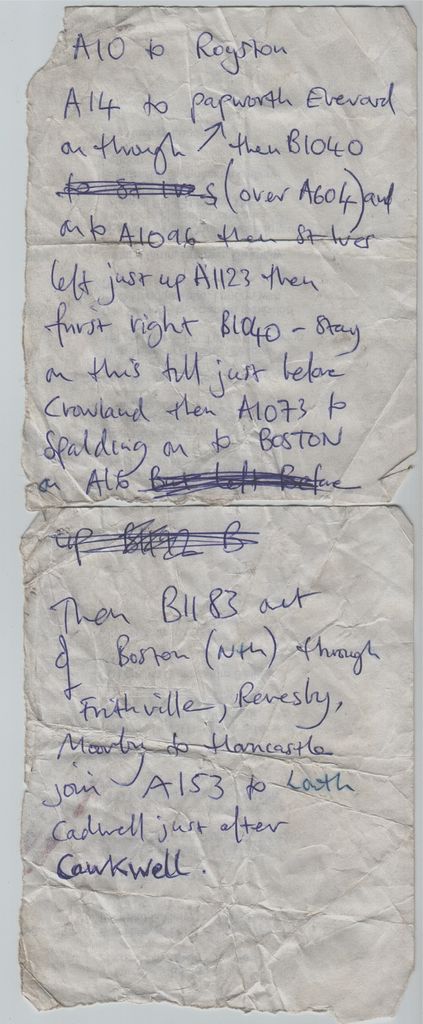 A10 to Royston
A14 to papworth Everard
on through then B1040
to St Ives (over A604) and
onto A1096 then St Ives
left just up A1123 then
first right B1040 - stay
on this till just before
Crowland then A1073 to
Spalding on to BOSTON
on A16 But left Before
up B
Then B1183 out
of Boston (Nth) through
Frithville, Revesby,
Moorby to Horncastle
join A153 to Louth
Cadwell just after
Cawkwell.